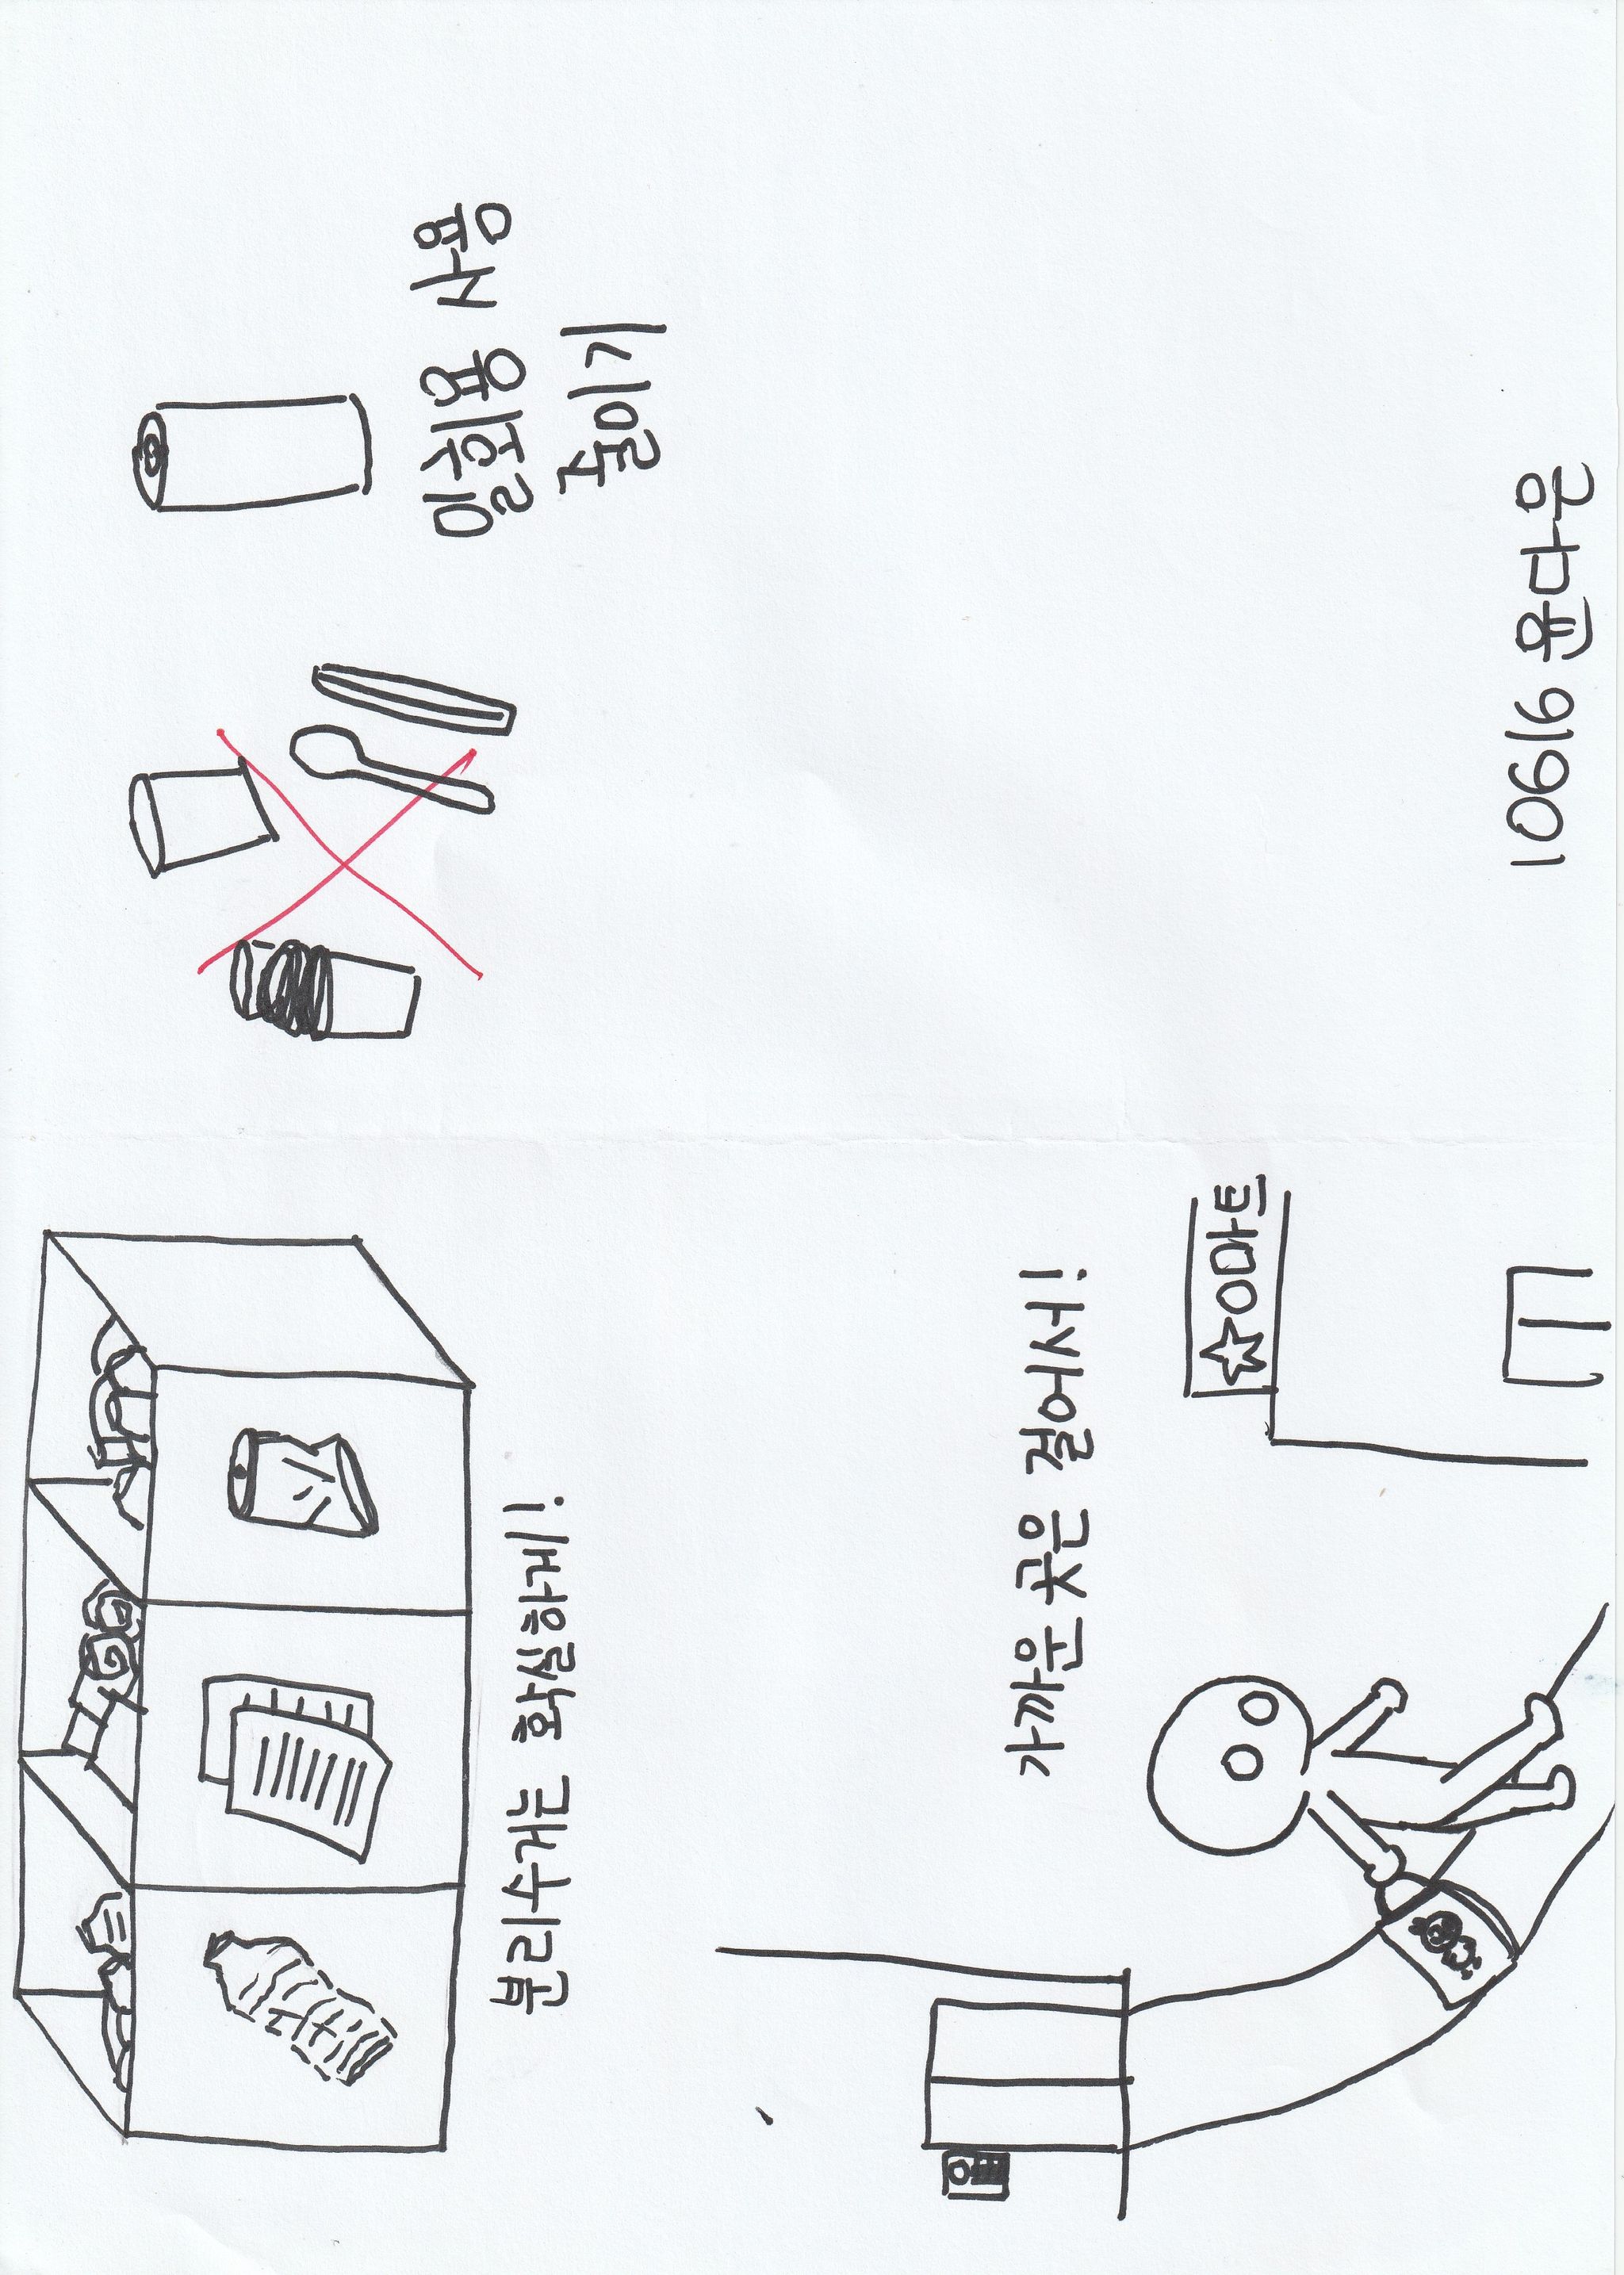 분리수거는 확실하게!
일회용 사용
줄이기
가까운 곳은 걸어서!
☆마트
10616 윤다은